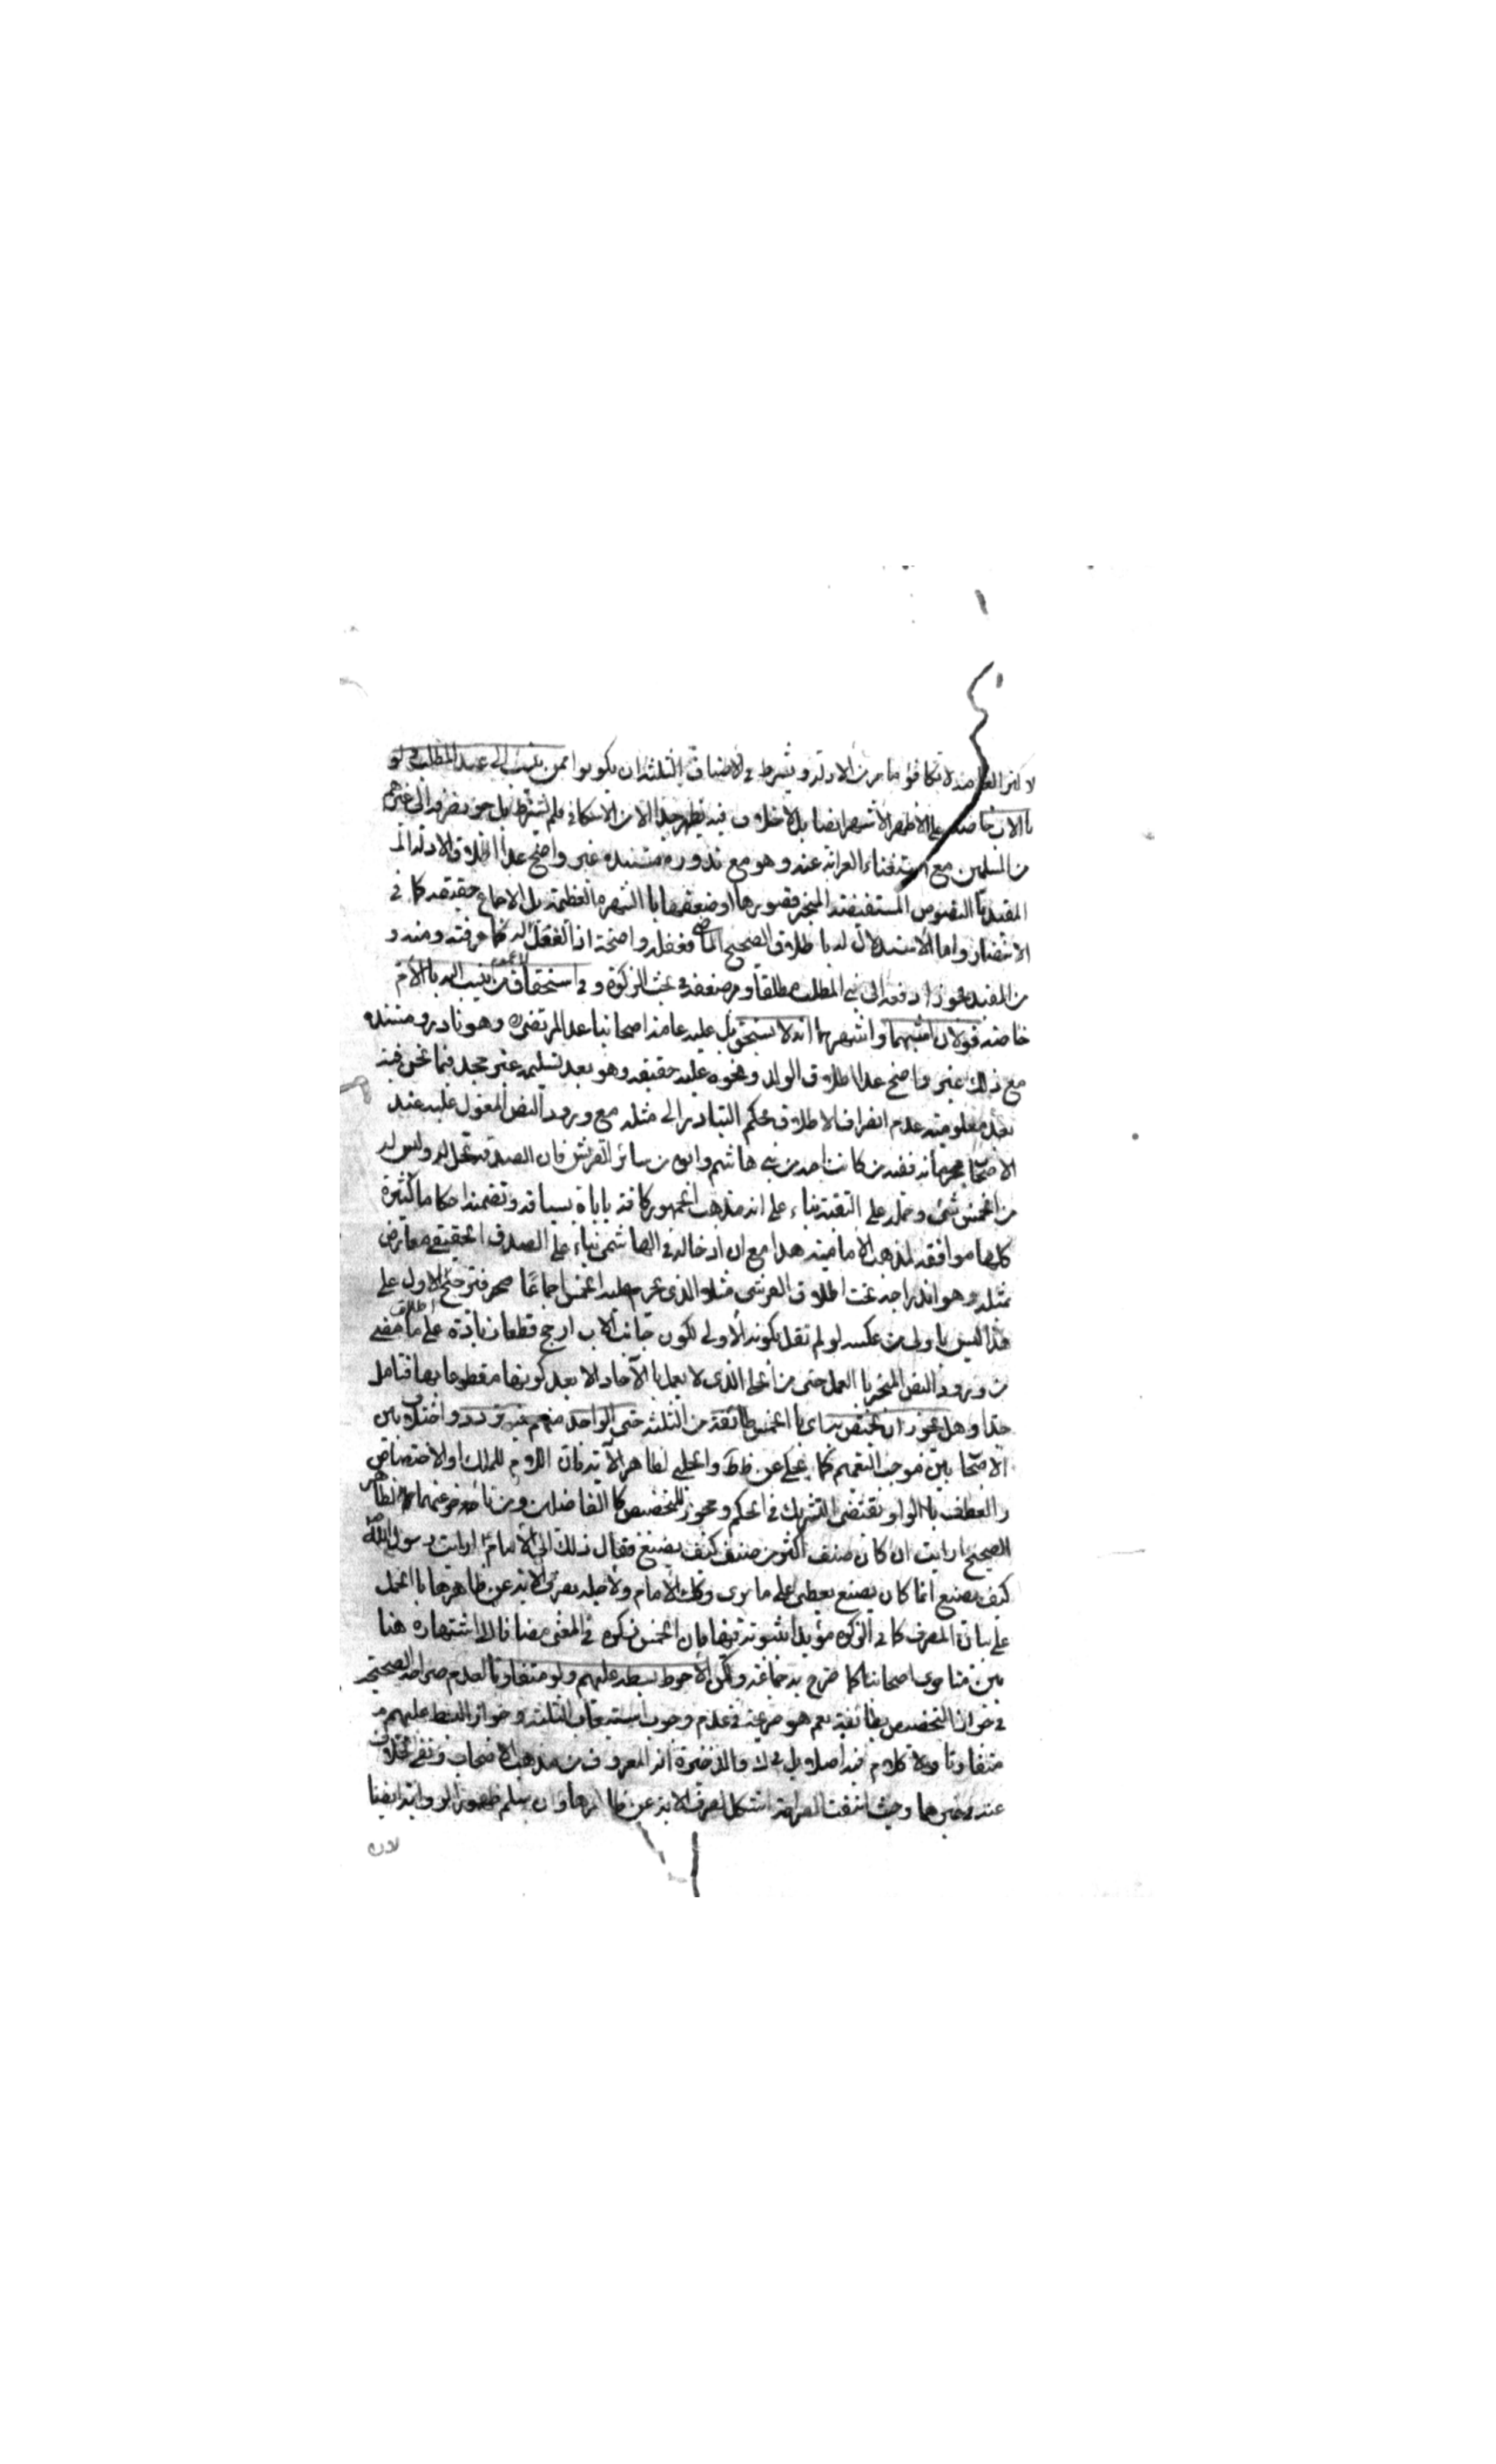 لا كثر العاضدة لا تكافؤ ما مر من الادلة ويشرط في الاصناف الثلثة ان يكونوا ممن ينتسب الى عبد المطلب فلو
بالاب خاصة على الاظهر الاشهر ايضا بل لا خلاف فيه يظهر جدا الا من الاسكافي فلم يشترط بل جوز صرفه الى غيرهم
من المسلمين مع استغناء القرابة عنه وهو مع ندوره مستنده غير واضح عدا اطلاق الادلة الـ
المقيد بالنصوص المستفيضة المنجبر قصورها او ضعفها بالشهرة العظيمة بل الاجماع حقيقة كما في
الانتصار واما الاستدلال له باطلاق الصحيح الماضي فغفلة واضحة اذ الغفلة له كما عرفته ومنه و
من المفيد فجوزا دفعه الى بني المطلب مطلقا ومر ضعفه في بحث الزكوة وفي استحقاق من ينتسب اليه بالام
خاصة قولان اشبههما واشهرهما انه لا يستحق بل عليه عامة اصحابنا عدا المرتضى ره وهو نادر ومستنده
مع ذلك غير واضح عدا اطلاق الولد ونحوه عليه حقيقة وهو بعد تسليمه غير مجد فيما نحن فيه
بعد معلومية عدم انصراف الاطلاق بحكم التبادر الى مثله مع ورود النص المعول عليه عند
الاصحاب بحرمانه ففيه من كانت امه من بني هاشم وابوه من سائر القريش فان الصدقة تحل له وليس له
من الخمس شئ وحمله على التقية بناء على انه مذهب الجمهور كافة ياباه سياقه وتضمنه احكاما كثيرة
كلها موافقة لمذهب الامامية هذا مع ان ادخاله في الهاشمي بناء على الصدق الحقيقي معارض
بمثله وهو اندراجه تحت اطلاق القرشي مثلا الذي يحرم عليه الخمس اجماعا صح فترجيح الاول على
هذا ليس باولى من عكسه لو لم نقل بكونه الاولى لكون جانب الاب ارجح قطعا زيادة على ما مضى
من ورود النص المنجبر بالعمل حتى من الحلي الذي لا يعمل بالآحاد الا بعد كونها مقطوعا بها فتامل
جدا وهل يجوز ان يختص به اي بالخمس طائفة من الثلثة حتى الواحد منهم فيه تردد واختلاف بين
الاصحاب بين موجب التعميم كما يحكى عن ط والحلبي لظاهر الآية فان اللام للملك او الاختصاص
والعطف بالواو يقتضي التشريك في الحكم ومجوز للتخصيص كالفاضلين ومن تاخر عنهما لظاهر
الصحيح ارايت ان كان صنف اكثر من صنف كيف يصنع فقال ذلك الى الامام ارايت رسول الله ص
كيف يصنع انما كان يصنع يعطي على ما يرى وكذلك الامام ولاجله يصرف الآية عن ظاهرها بالحمل
على بيان المصرف كما في الزكوة مؤيدا بثبوته فيها بان الخمس زكوة في المعنى مضافا الى اشتهاره هنا
بين متاخري اصحابنا كما صرح به جماعة ولكن الاحوط بسطه عليهم ولو متفاوتا لعدم صراحة الصحيح
في جواز التخصيص بطائفة نعم هو صريح في عدم وجوب استيعاب الثلثة وجواز البسط عليهم
متفاوتا ولا كلام فيه اصلا بل في ك والذخيرة انه المعروف من مذهب الاصحاب ونفي الخلاف
عنه في غيرهما وحيث انتفت الصراحة اشكل صرف الآية عن ظاهرها وان سلم ظهور الرواية ايضا
لان